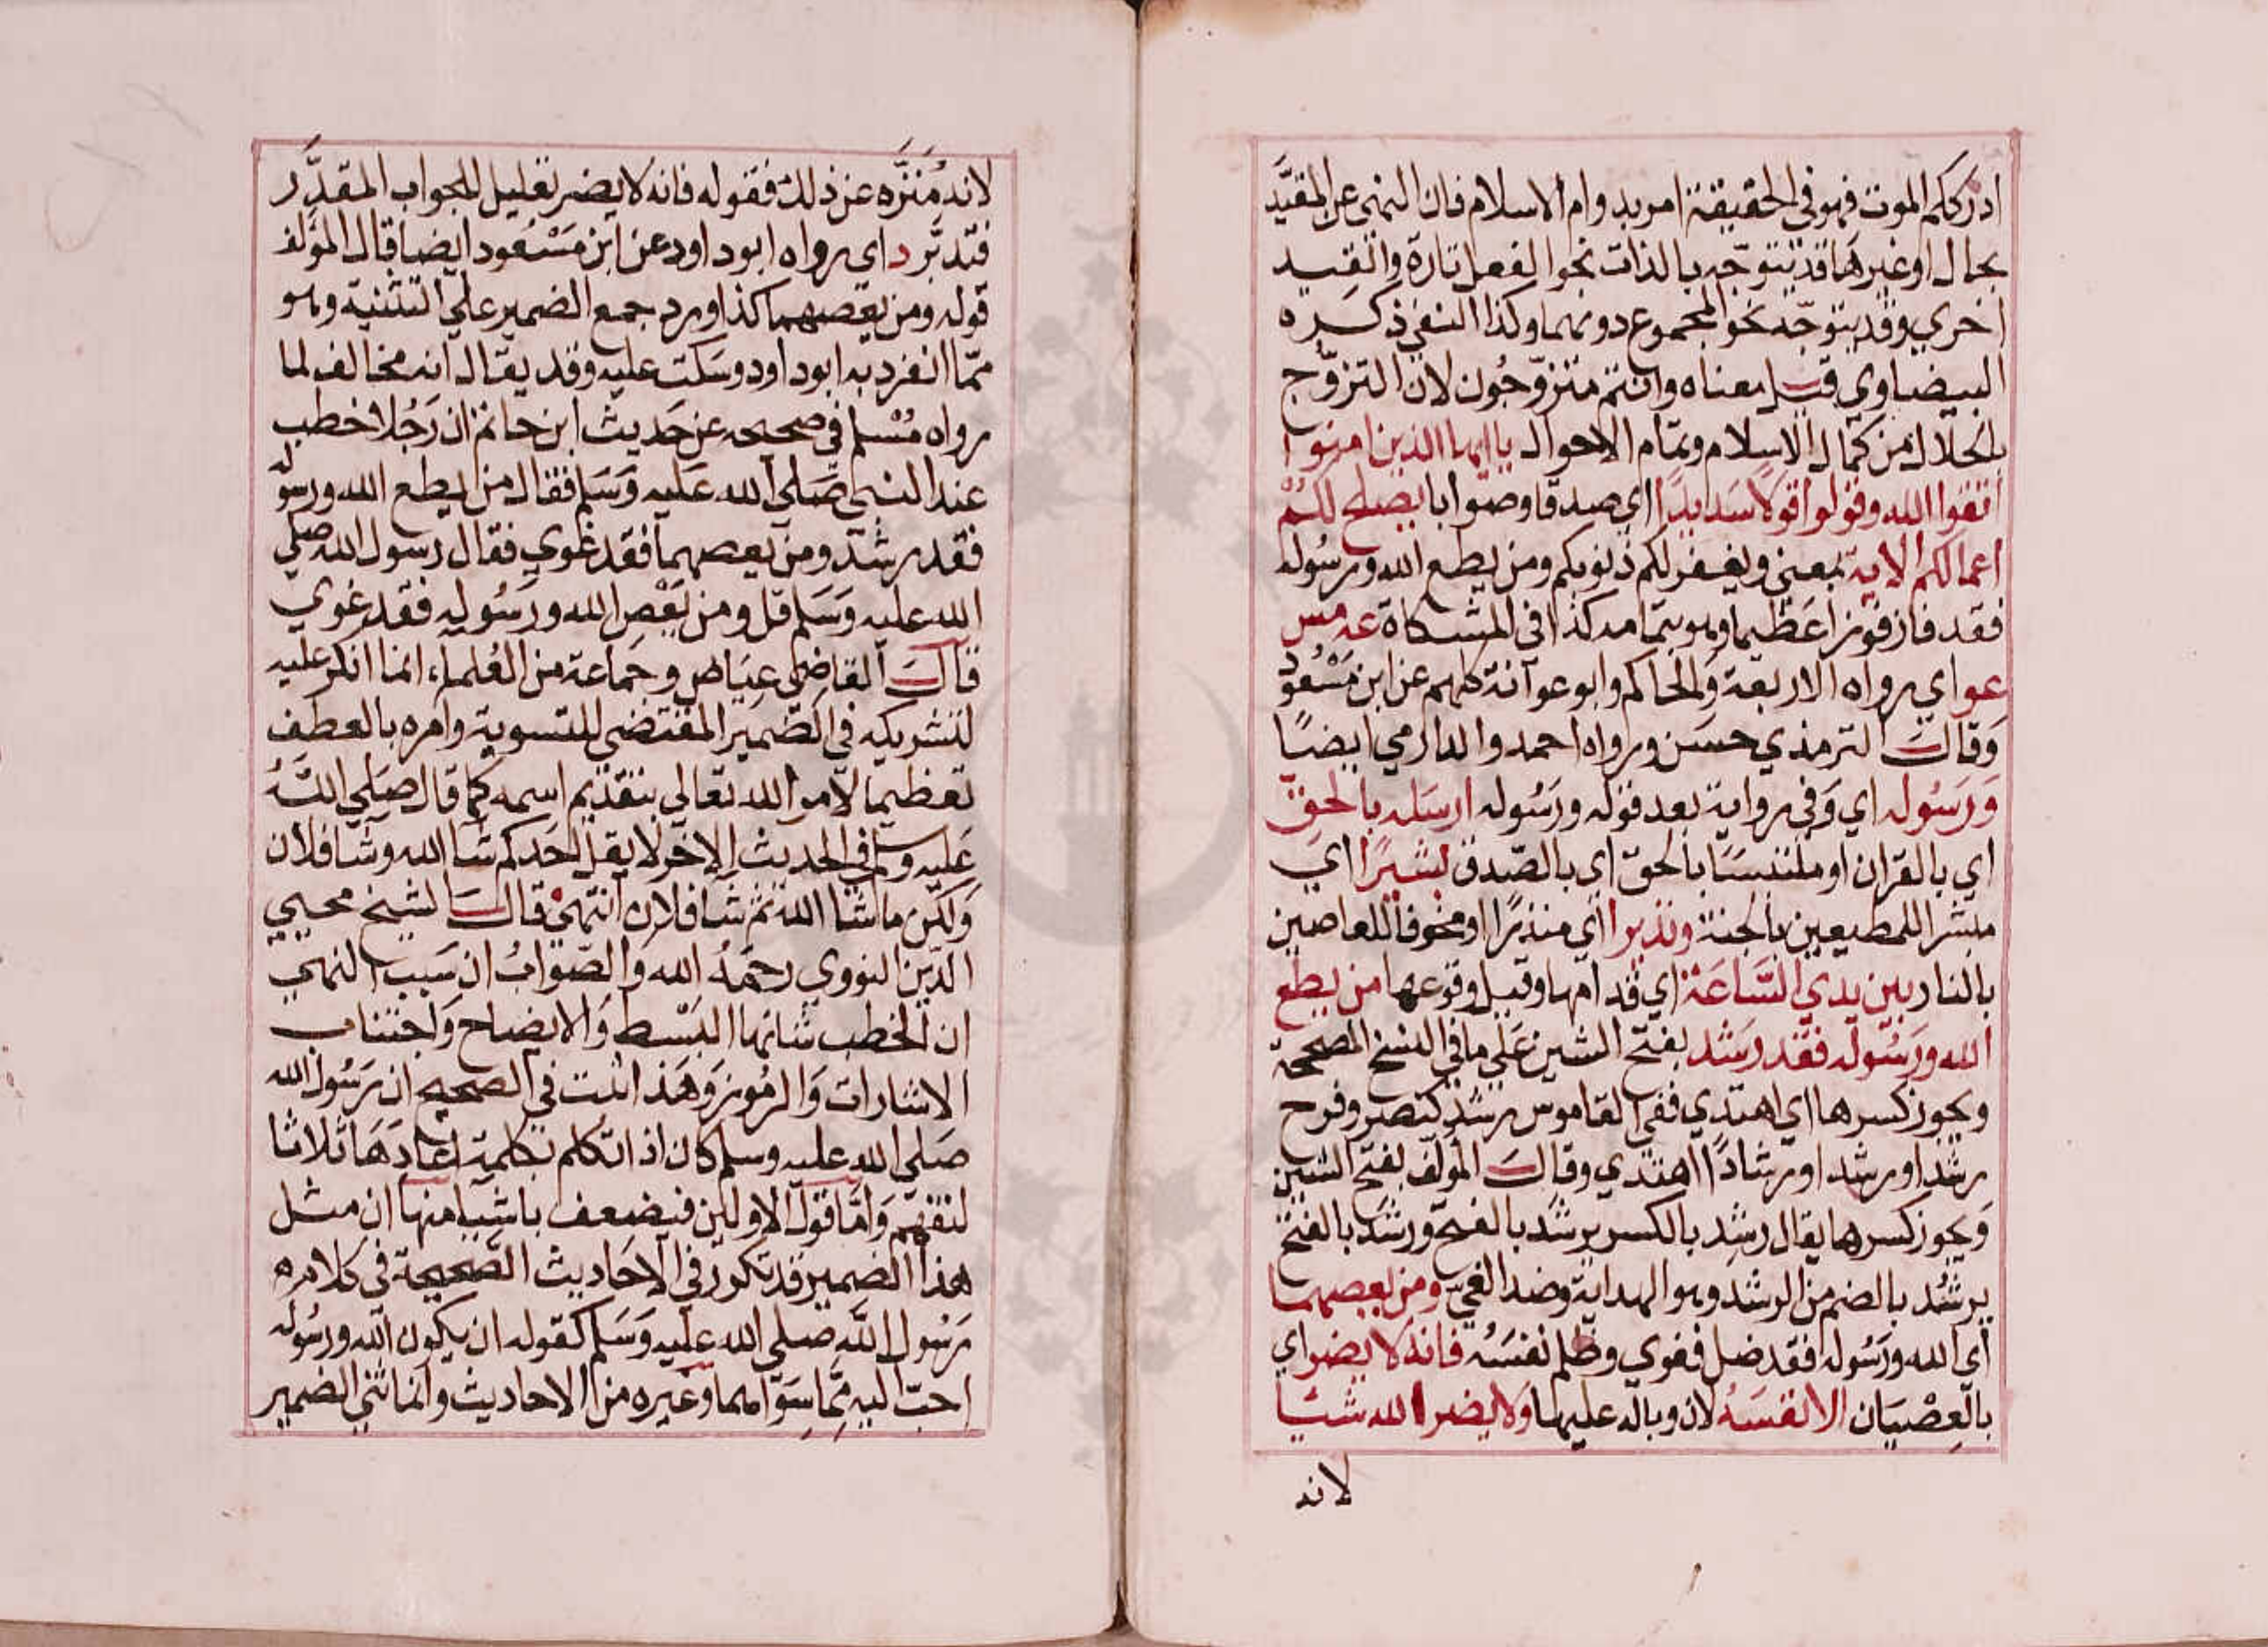 ادرككم الموت فهو في الحقيقة امر بدوام الاسلام فان النهي عن المقيَّد
بحال او غيرها قد يتوجّه بالذات نحو الفعل تارة والقيد
اخري وقد يتوجّه نحو المجموع دونهما وكذا النفي ذكره
البيضاوي قيل معناه وانتم متزوّجُون لان التزوّج
بالحلال من كمال الاسلام وتمام الاحوال يا ايها الذين امنوا
اتقوا الله وقولوا قولاً سديدًا اي صدقا وصوابا يصلح لكُمْ
اعمالكم الاية بمعني ويغفر لكم ذنوبكم ومن يطع الله ورسُوله
فقد فاز فوزا عَظيما وهو بتمامه كذا في المشكاة عه مس
عو اي رواه الاربعة وَالحاكم وابو عوآنة كلهم عن ابن مَسْعُود
وَقالَ الترمذي حسَن ورواه احمد والدارمي ايضًا
وَرَسُوله اي وَفي رواية بعد قوله ورَسُوله ارسَله بالحقّ
اي بالقران او ملتبسًا بالحقّ اي بالصّدق بشيرًا ايَ
مبشرا للمطيعين بالجنة ونذيرا اي منذرًا او مخوفا للعاصين
بالنار بين يدي السَّاعَة اي قدامها وقبل وقوعها من يطع
الله ورَسُوله فقد رشَد بفتح الشين عَلي ما في النسخ المصححة
ويجوز كسرها اي اهتدي ففي القاموس رشد كنصر وفرح
رشدا ورشدا ورشادًا اهتدي وقالَ المؤلف بفتح الشين
وَيجوز كسرها يقال رشِد بالكسر يرشَد بالفتح ورشَد بالفتح
يرشُد بالضم من الرشد وهو الهداية وضد الغيّ ومن يعصهما
اي الله ورَسُوله فقد ضل فغوي وظلم نفسَه فانه لا يضر اي
بالعِصْيَان الا نفسَهُ لان وباله عليها ولا يضر الله شيًا
لانه
لانه مُنَزَّه عن ذلك فقوله فانه لا يضر تعليل للجواب المقدَّر
فتدبّر د اي رواه ابو داود عن ابن مَسْعُود ايضا قال المؤلف
قوله ومن يعصهما كذا ورد جمع الضمير علي التثنية وهو
ممّا انفرد به ابو داود وسَكت عليه وقد يقال انه مخالف لما
رواه مُسْلم في صحيحه عن حَديث ابن حاتم ان رَجُلا خطب
عند النبي صَلي الله عَليه وَسَلم فقال من يطع الله ورسوله
فقد رشد ومن يعصهما فقد غوي فقال رسول الله صلي
الله عليه وَسَلم قل ومن يَعْصِ الله ورَسُوله فقد غوي
قالَ القاضي عيَاض وجَماعة من العُلماء انما انكر عليه
لتشريكه في الضّمير المقتضي للتسوية وامره بالعطف
تعظيما لامر الله تعالي بتقديم اسمه كما قال صَلي اللّهُ
عَليه وسلم في الحديث الاخر لا يقل احَدكم شا الله وشا فلان
وَلكن ما شا الله ثم شا فلان انتهي قالَ الشيخ محيي
الدّين النووي رحمَهُ الله والصّوابُ ان سَبب النهي
ان الخطب شانها البَسْط وَالايضاح وَاجتناب
الاشارات وَالرمُوز وَهَذا ثبت في الصحيح ان رَسُول الله
صَلي الله عليه وسلم كان اذا تكلم بكلمة اعادَهَا ثلاثا
لتفهم وَامّا قول الاولين فيضعف باشيا منها ان مثل
هذا الضمير قد تكور في الاحَاديث الصّحيحة في كلامره
رَسُول اللّه صلي الله عليه وَسَلم كقوله ان يكون الله ورسُوله
احبّ اليه ممَّا سوَاهما وغيره من الاحاديث وانما ثني الضمير